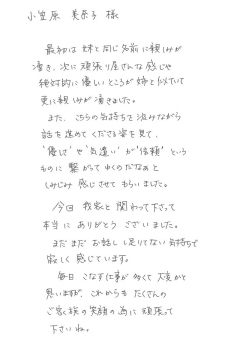 小笠原 美奈子 様
最初は 妹と同じ名前に親しみが
湧き、次に頑張り屋さんな感じや
絶対的に優しいところが姉と似ていて
更に親しみが湧きました。
また、こちらの気持ちを汲みながら
話を進めてくださる姿を見て、
"優しさ"や"気遣い"が"信頼"という
ものに繋がってゆくのだなぁと
しみじみ感じさせてもらいました。
今回 我家と関わって下さって
本当に ありがとう ございました。
まだまだお話し足りてない気持ちで
寂しく感じています。
毎日 こなす仕事が多くて大変かと
思いますが、これからもたくさんの
ご家族の笑顔の為に頑張って
下さいね。